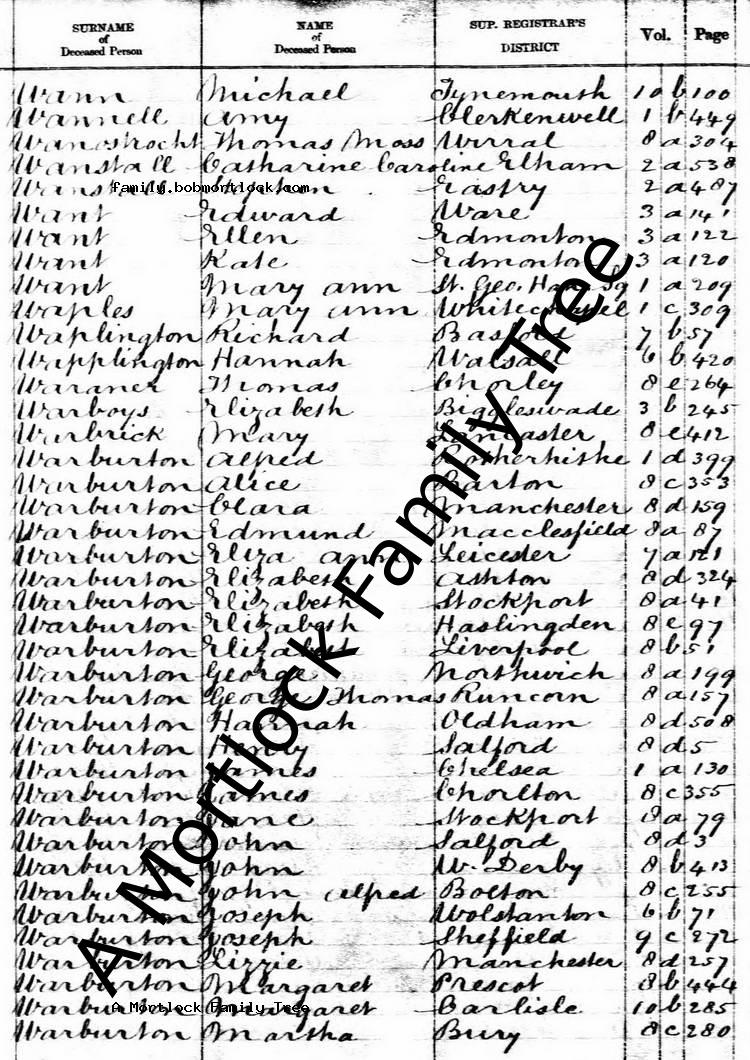 SURNAME of Deceased Person NAME of Deceased Person SUP. REGISTRAR'S DISTRICT Vol. Page
Wann Michael Tynemouth 10 b 100
Wannell Amy Clerkenwell 1 b 449
Wanostrocht Thomas Moss Wirral 8 a 304
Wanstall Catharine Caroline Eltham 2 a 538
family.bobmortlock.com Eastry 2 a 487
Want Edward Ware 3 a 141
Want Ellen Edmonton 3 a 122
Want Kate Edmonton 3 a 120
Want Mary Ann St. Geo. Han. Sq 1 a 209
Waples Mary Ann Whitechapel 1 c 309
Waplington Richard Basford 7 b 57
Wapplington Hannah Walsall 6 b 420
Waraner Thomas Chorley 8 e 264
Warboys Elizabeth Biggleswade 3 b 245
Warbrick Mary Lancaster 8 e 412
Warburton Alfred Rotherhithe 1 d 399
Warburton Alice Barton 8 c 353
Warburton Clara Manchester 8 d 159
Warburton Edmund Macclesfield 8 a 87
Warburton Eliza Ann Leicester 7 a 121
Warburton Elizabeth Ashton 8 d 324
Warburton Elizabeth Stockport 8 a 41
Warburton Elizabeth Haslingden 8 e 97
Warburton Elizabeth Liverpool 8 b 51
Warburton George Northwich 8 a 199
Warburton George Thomas Runcorn 8 a 157
Warburton Hannah Oldham 8 d 508
Warburton Henry Salford 8 d 5
Warburton James Chelsea 1 a 130
Warburton James Chorlton 8 c 355
Warburton Jane Stockport 8 a 79
Warburton John Salford 8 d 3
Warburton John W. Derby 8 b 413
Warburton John Alfred Bolton 8 c 255
Warburton Joseph Wolstanton 6 b 71
Warburton Joseph Sheffield 9 c 272
Warburton Lizzie Manchester 8 d 257
Warburton Margaret Prescot 8 b 444
Warburton Margaret Carlisle 10 b 285
A Mortlock Family Tree
Warburton Martha Bury 8 c 280
A Mortlock Family Tree